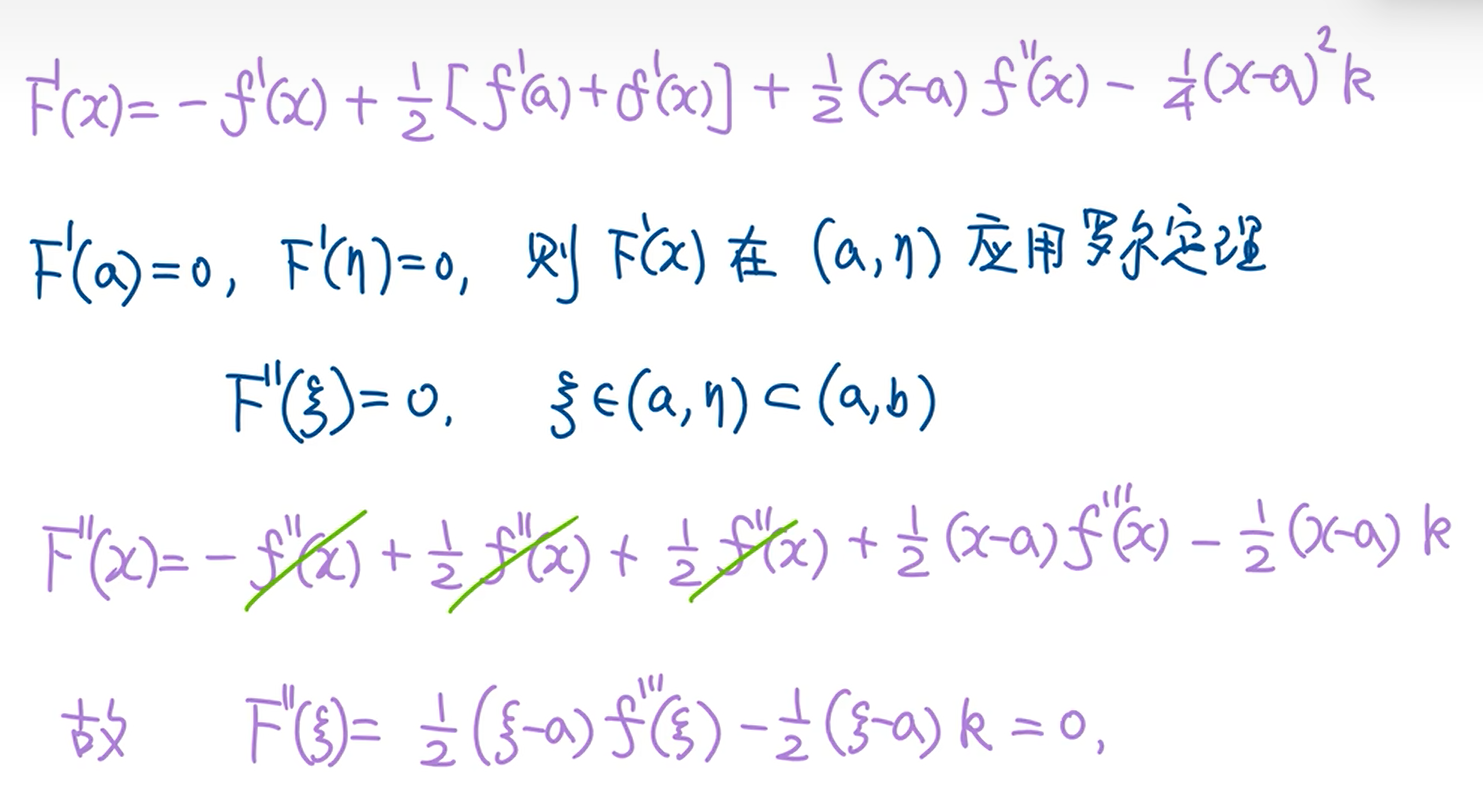 F'(x) = - f'(x) + 1/2 [f'(a) + f'(x)] + 1/2 (x-a) f''(x) - 1/4 (x-a)² k
F'(a) = 0, F'(η) = 0, 则 F'(x) 在 (a, η) 应用罗尔定理
F''(ξ) = 0, ξ ∈ (a, η) ⊂ (a, b)
F''(x) = - f''(x) + 1/2 f''(x) + 1/2 f''(x) + 1/2 (x-a) f'''(x) - 1/2 (x-a) k
故 F''(ξ) = 1/2 (ξ-a) f'''(ξ) - 1/2 (ξ-a) k = 0,